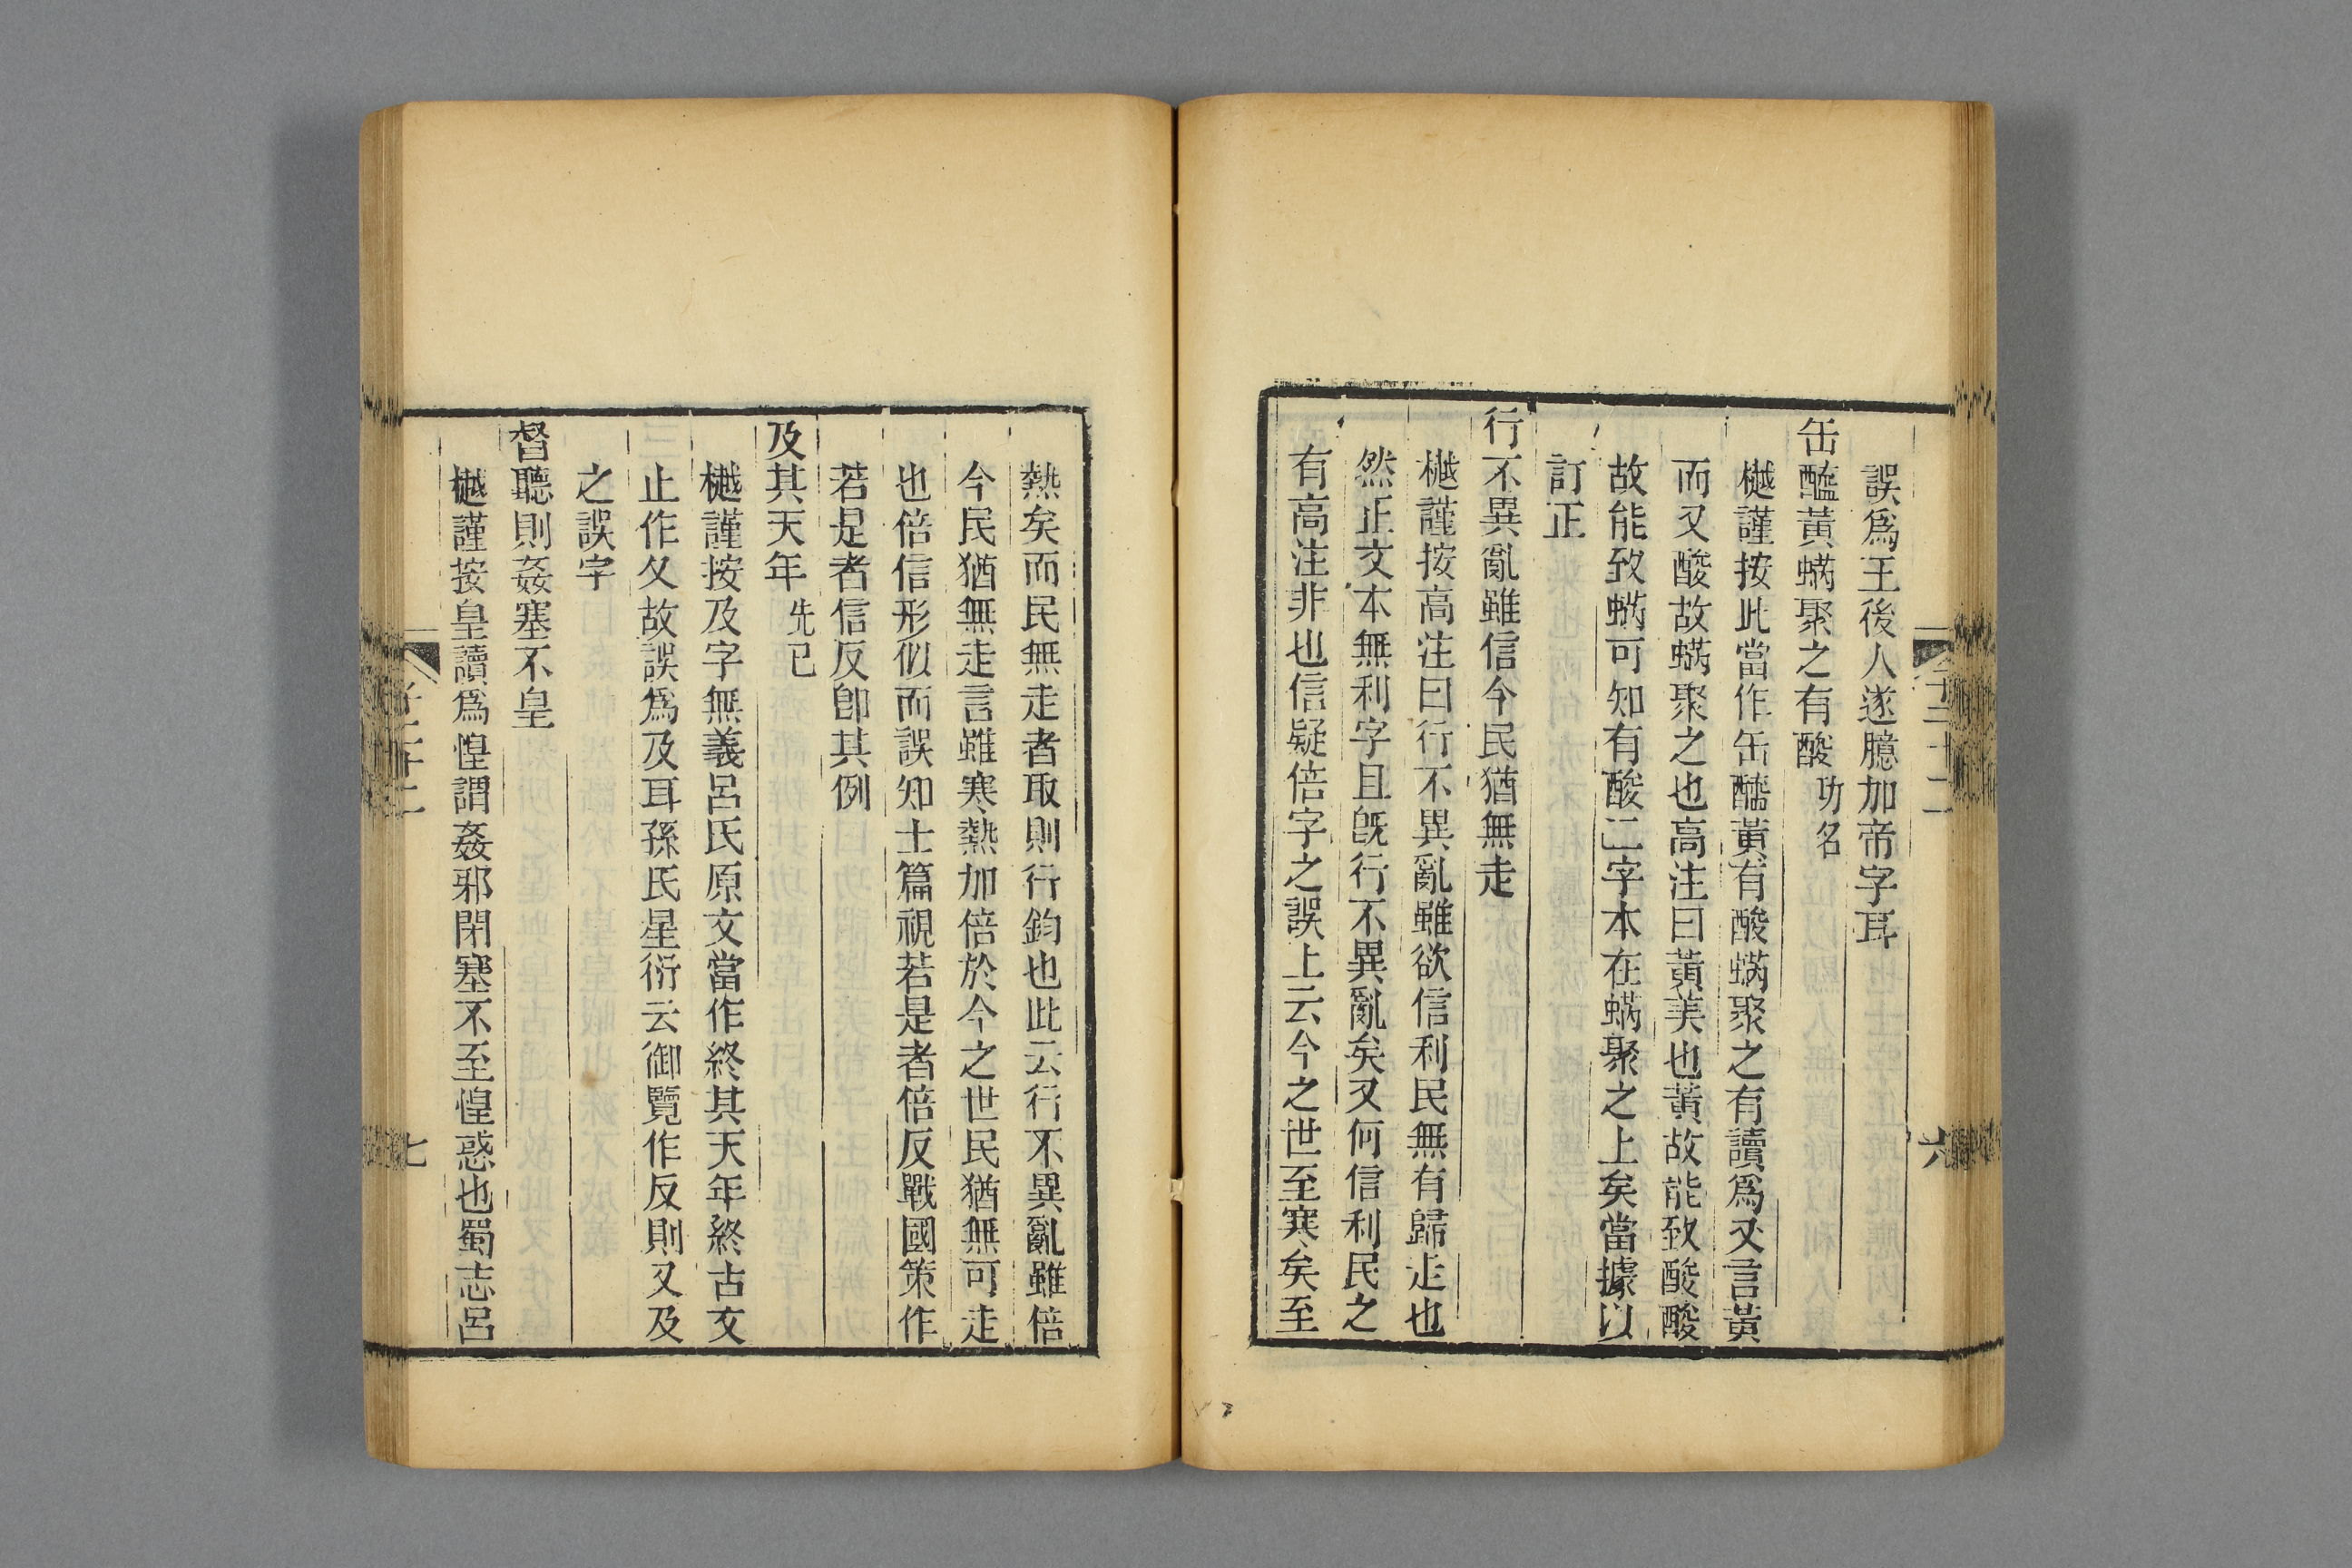 誤爲王後人遂臆加帝字耳
缶醯黃蜹聚之有酸功名
樾謹按此當作缶醯黃有酸蜹聚之有讀爲又言黃
而又酸故蜹聚之也高注曰黃美也黃故能致酸酸
故能致蜹可知有酸二字本在蜹聚之上矣當據以
訂正
行不異亂雖信今民猶無走
樾謹按高注曰行不異亂雖欲信利民無有歸走也
然正文本無利字且旣行不異亂矣又何信利民之
有高注非也信疑倍字之誤上云今之世至寒矣至
六
熱矣而民無走者取則行鈞也此云行不異亂雖倍
今民猶無走言雖寒熱加倍於今之世民猶無可走
也倍信形似而誤知士篇視若是者倍反戰國策作
若是者信反卽其例
及其天年先己
樾謹按及字無義呂氏原文當作終其天年終古文
止作夂故誤爲及耳孫氏星衍云御覽作反則又及
之誤字
督聽則姦塞不皇
樾謹按皇讀爲惶謂姦邪閉塞不至惶惑也蜀志呂
七